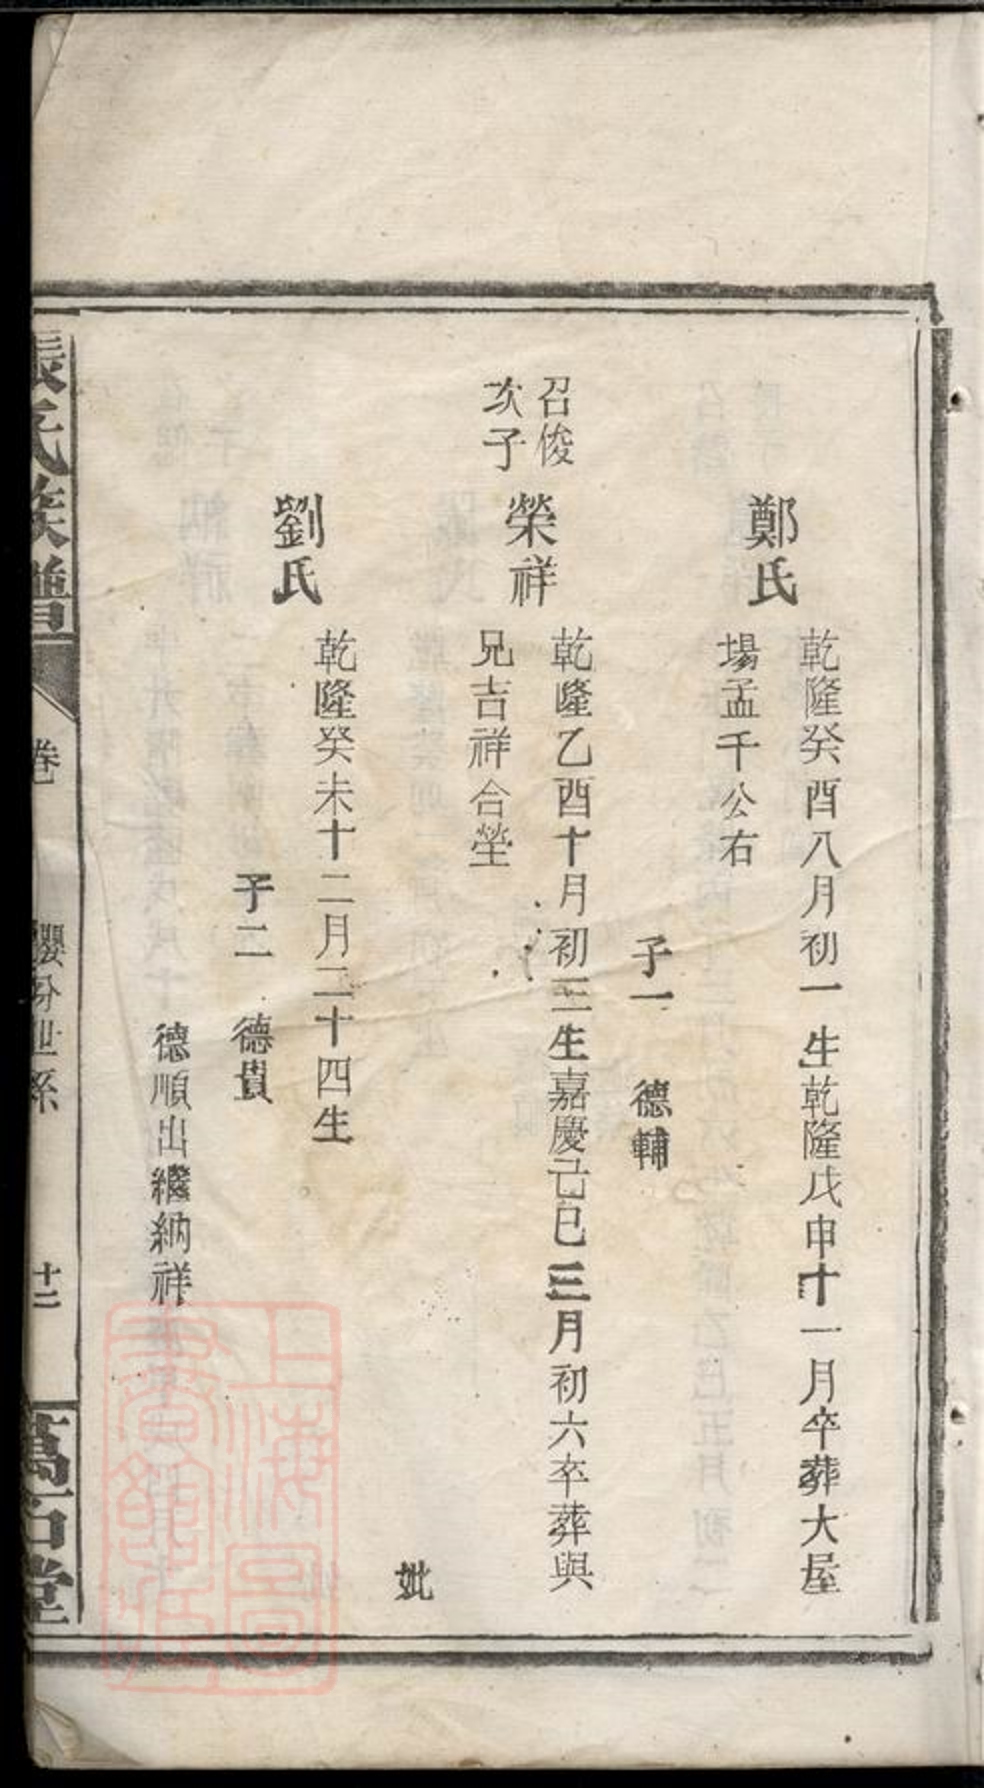 鄭氏
乾隆癸酉八月初一生乾隆戊申十一月卒葬大屋
場孟千公右
子一 德輔
召俊
次子
榮祥
乾隆乙酉十月初三生嘉慶己巳三月初六卒葬與
兄吉祥合塋
妣
劉氏
乾隆癸未十二月二十四生
子二 德貴
德順出繼納祥
張氏族譜
卷
世系
十二
萬石堂
上海圖書館藏